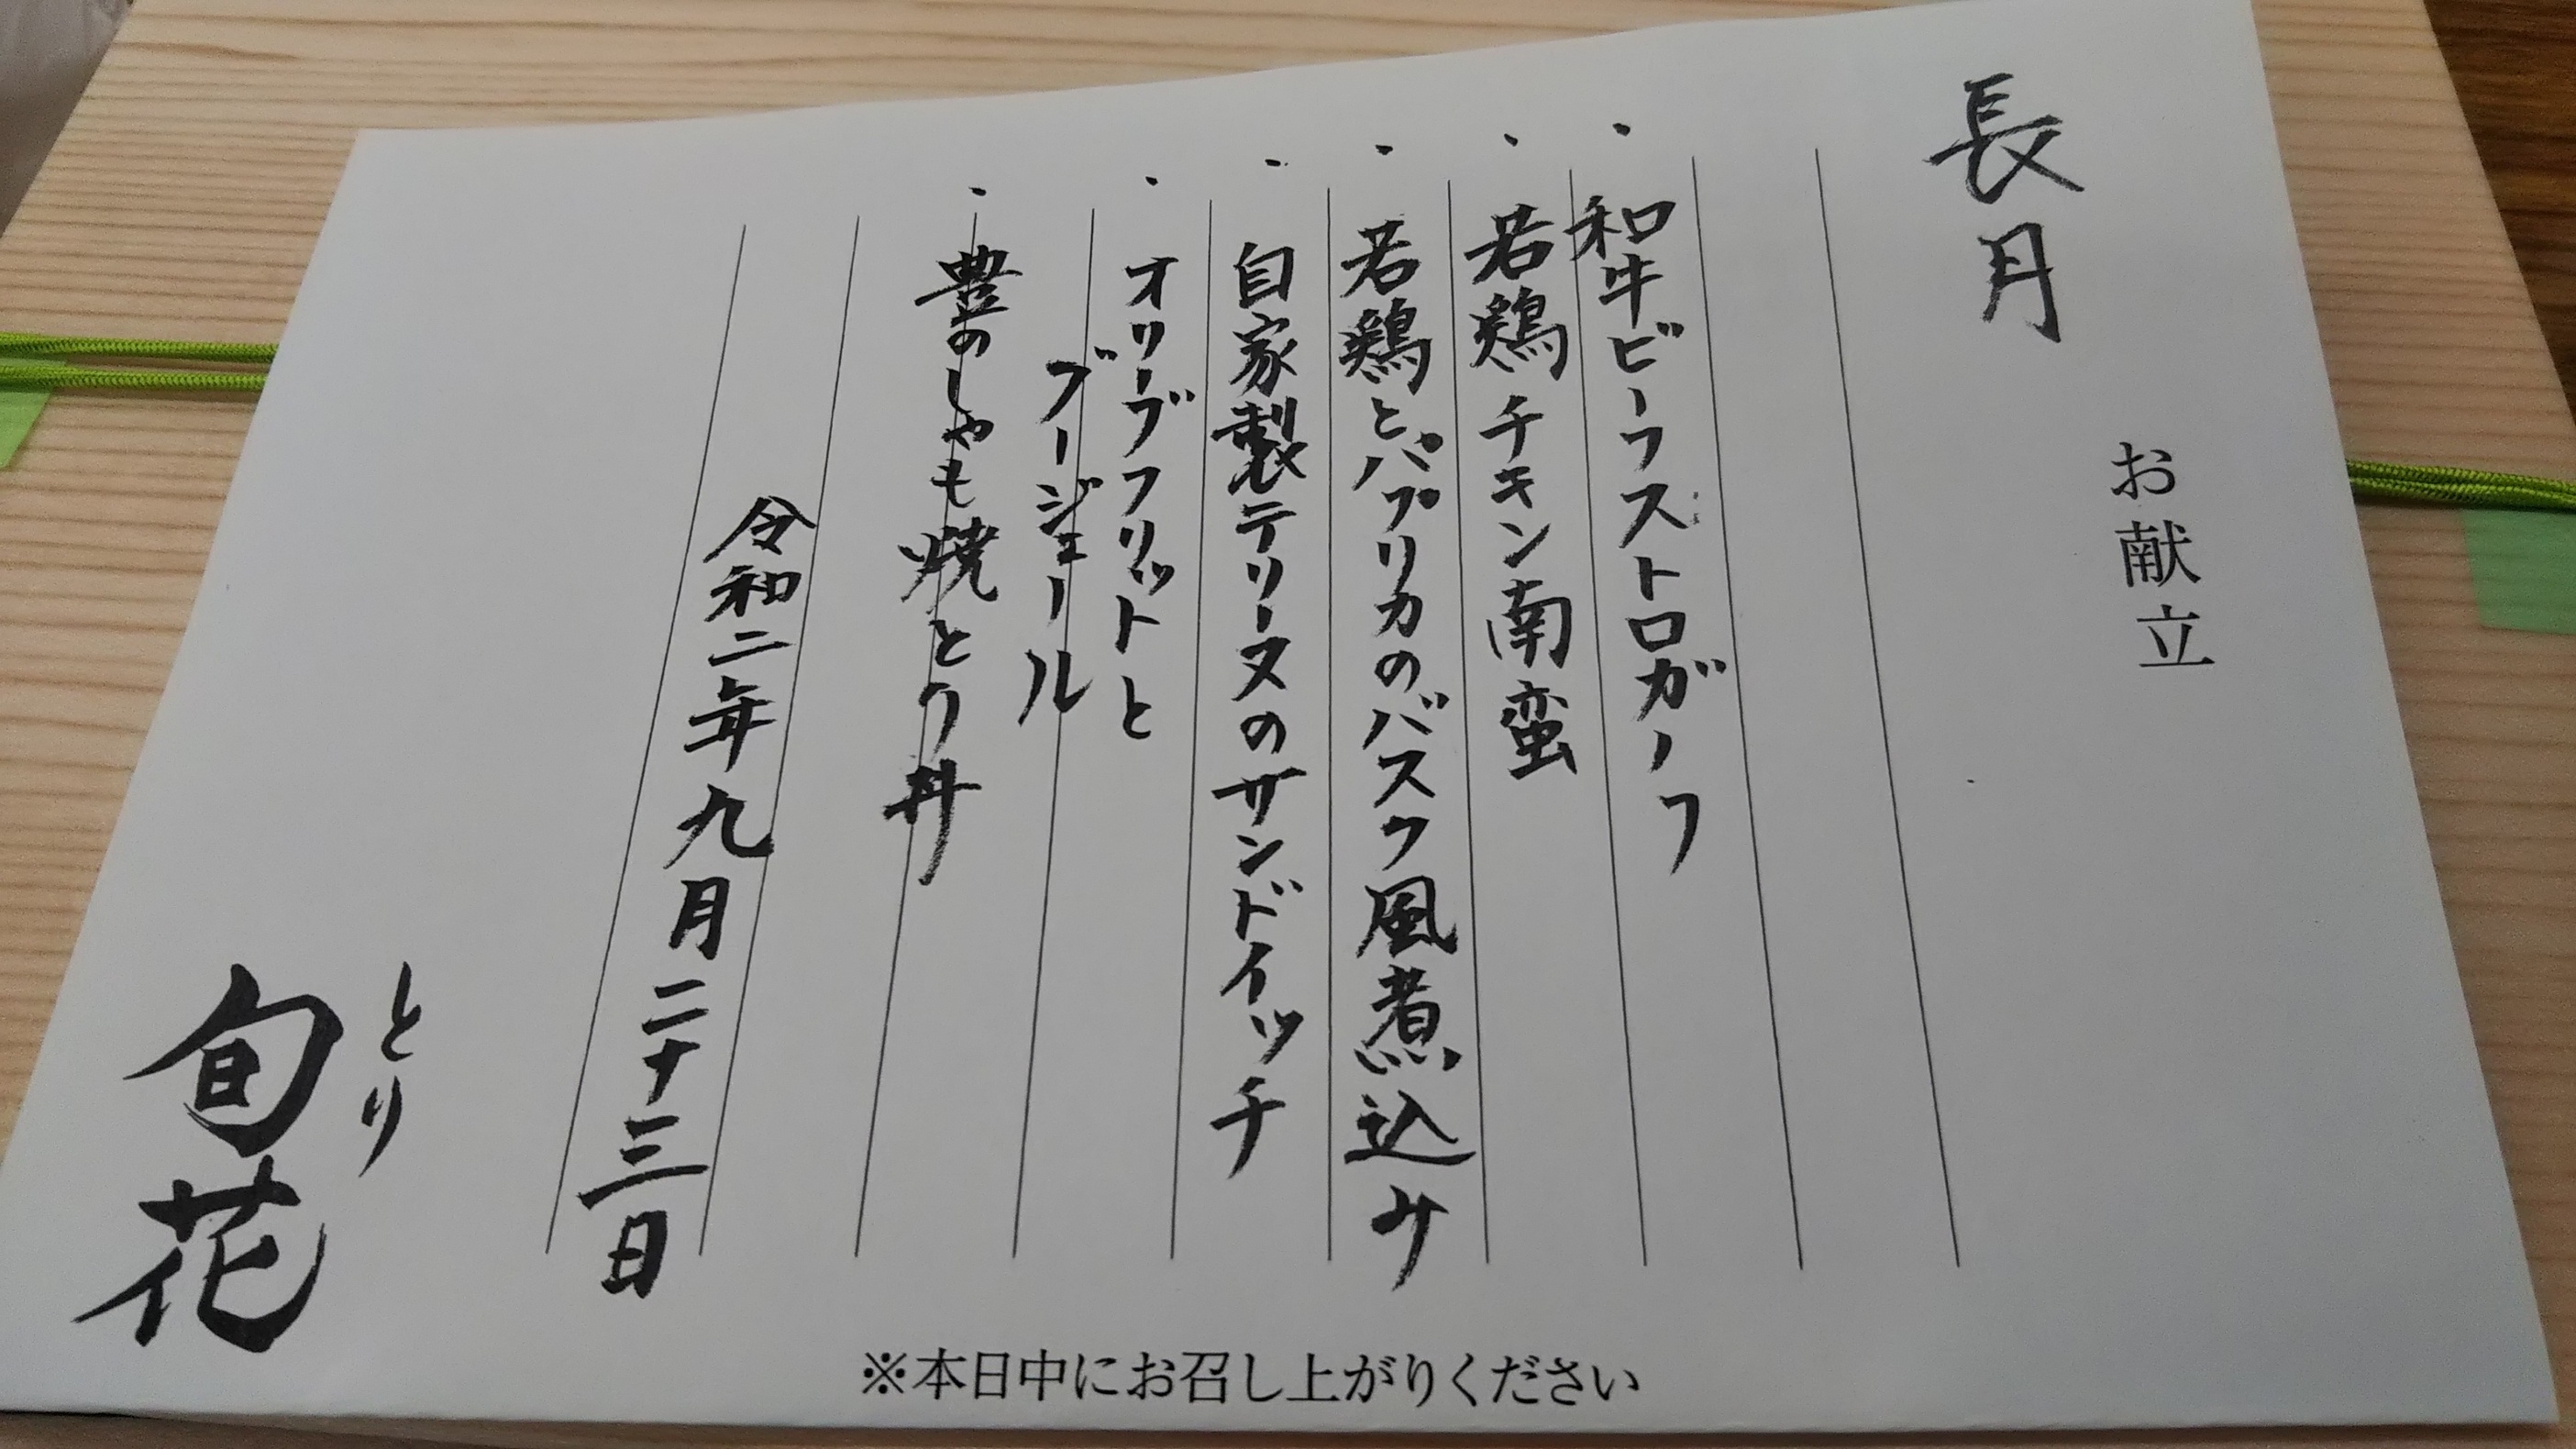 お献立
長月
・和牛ビーフストロガノフ
・若鶏チキン南蛮
・若鶏とパプリカのバスク風煮込み
・自家製テリーヌのサンドイッチ
・オリーブフリットと
ブージェール
・豊のしゃも焼とり丼
令和二年九月二十三日
とり
旬花
※本日中にお召し上がりください